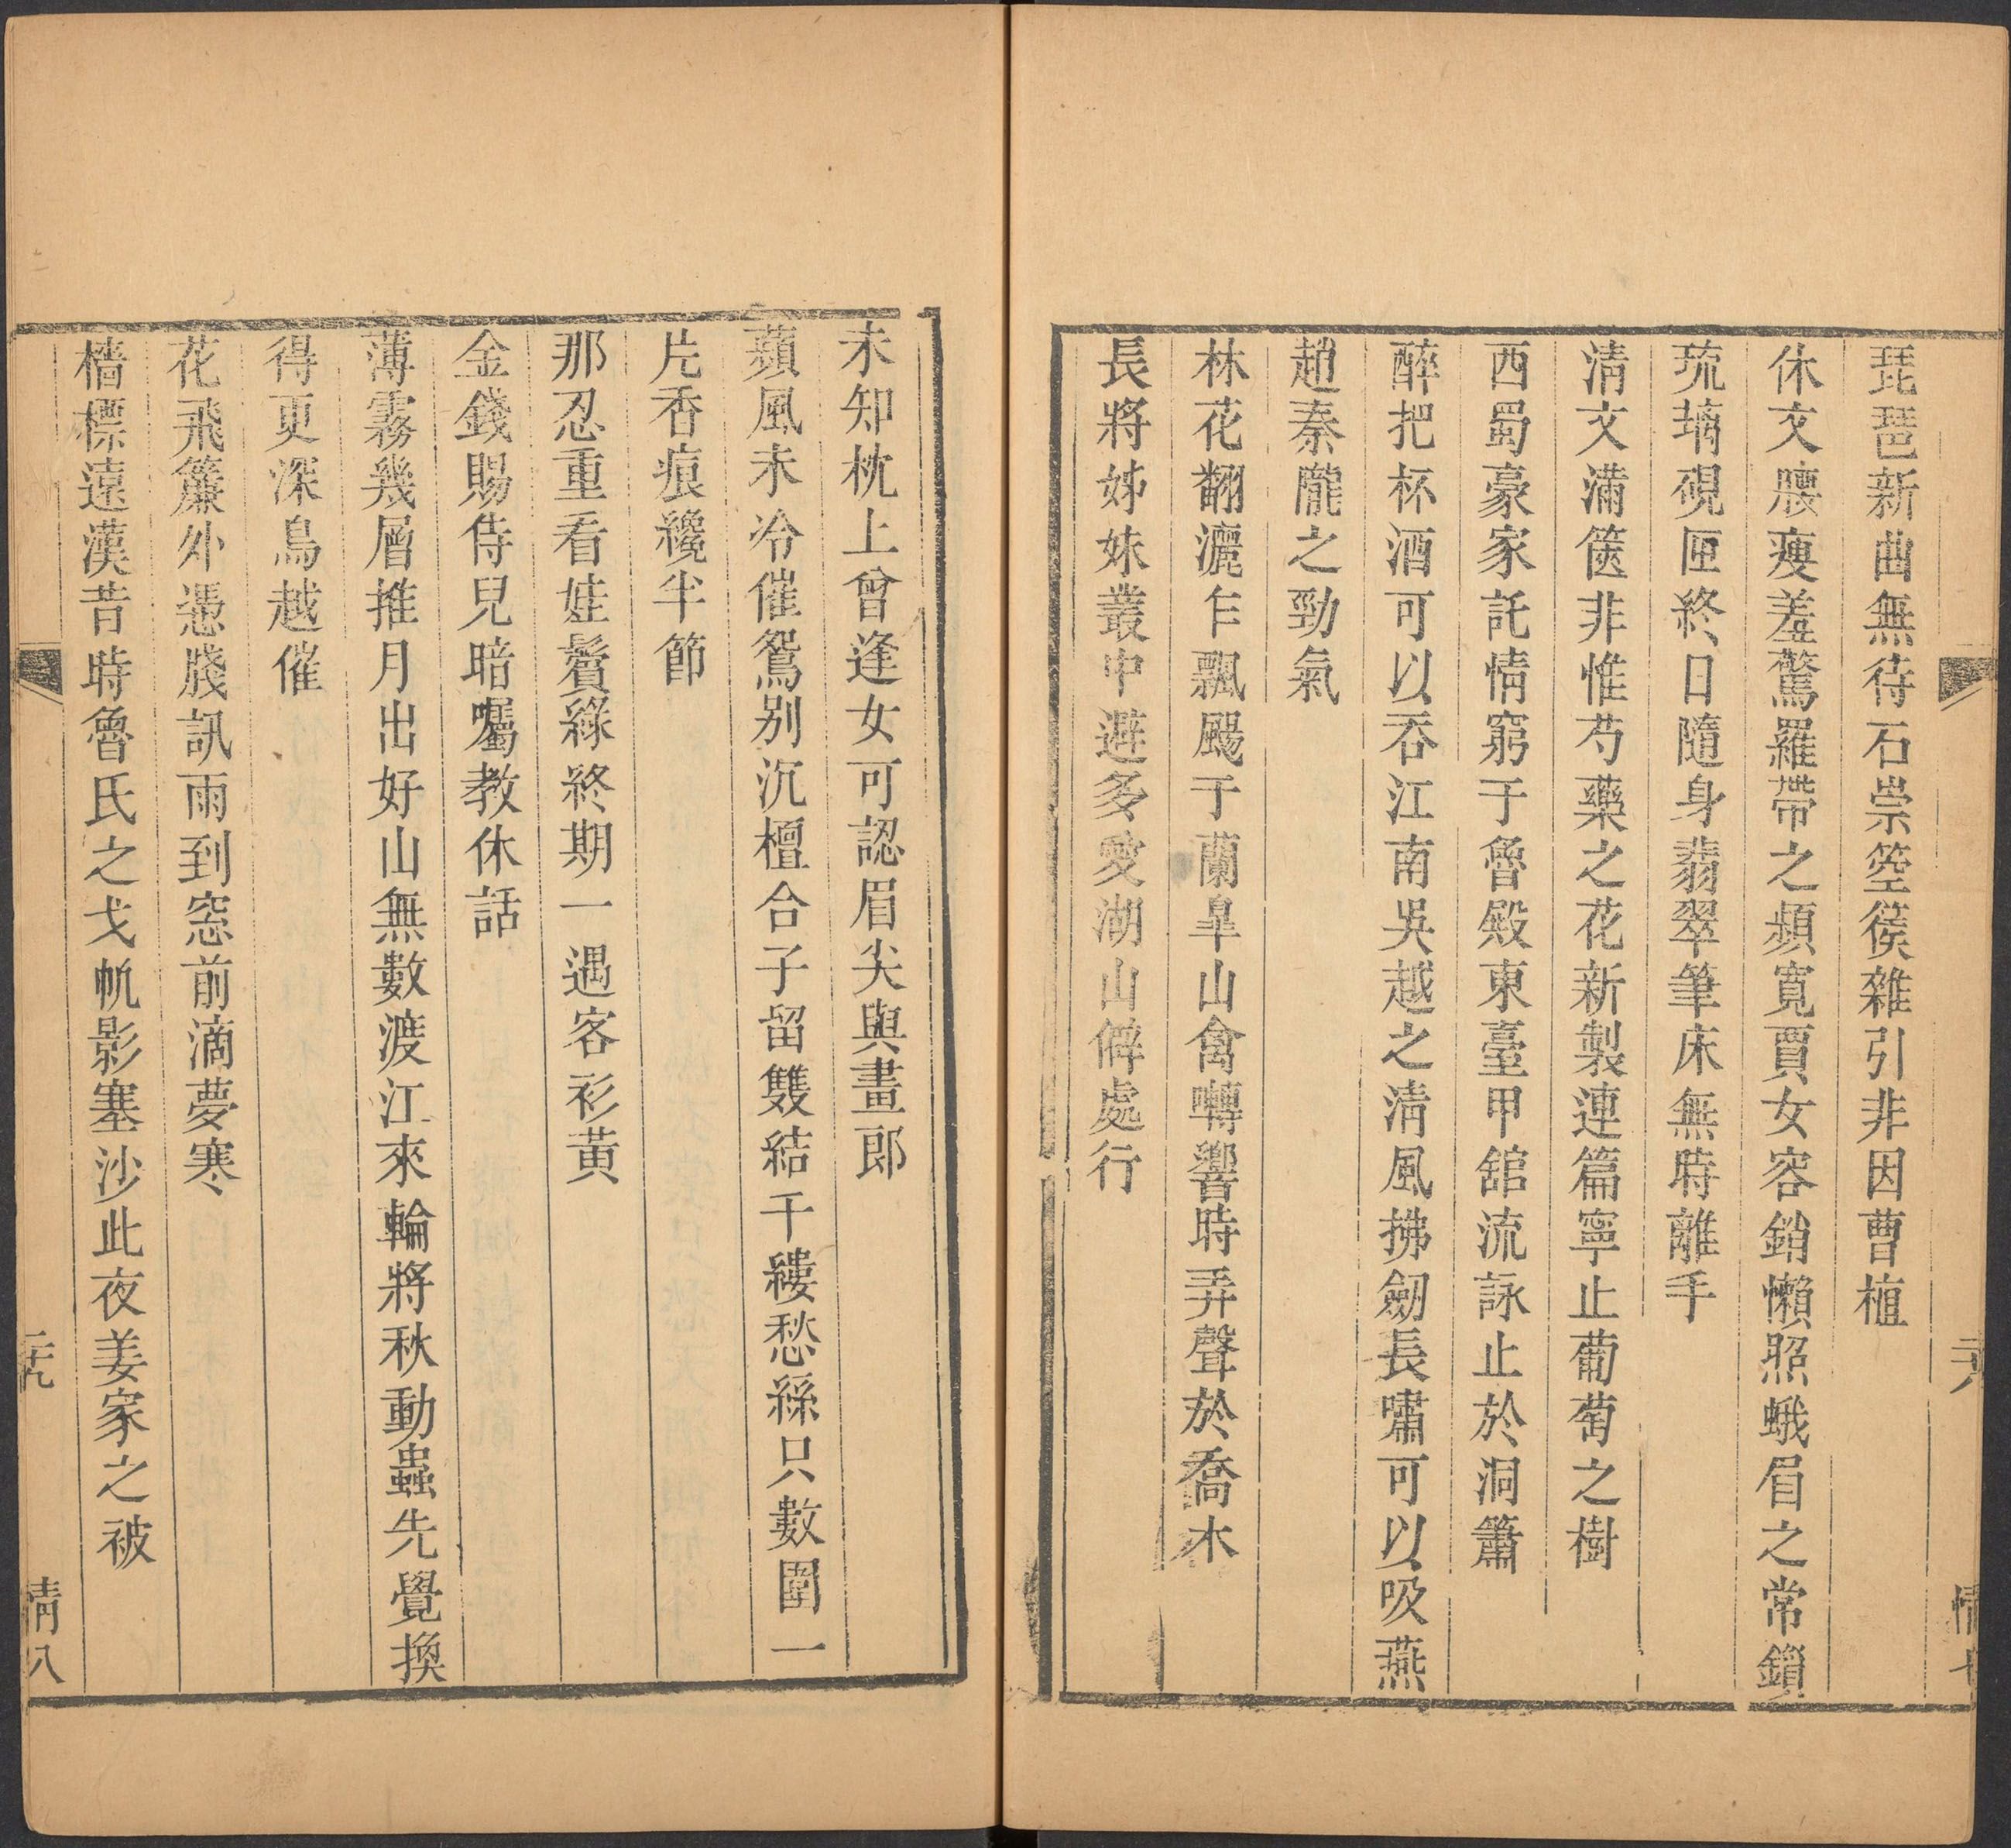 琵琶新曲無待石崇箜篌雜引非因曹植
休文腰瘦羞驚羅帶之頻寬賈女容銷懶照蛾眉之常鎖
琉璃硯匣終日隨身翡翠筆床無時離手
清文滿篋非惟芍藥之花新製連篇寧止葡萄之樹
西蜀豪家託情窮于魯殿東臺甲舘流詠止於洞簫
醉把杯酒可以吞江南吳越之清風拂劒長嘯可以吸燕
趙秦隴之勁氣
林花翻灑乍飄颺于蘭臯山禽囀響時弄聲於喬木
長將姊妹叢中避多愛湖山僻處行
二十八
情七
未知枕上曾逢女可認眉尖與畫郎
蘋風未冷催鴛别沉檀合子留雙結千縷愁絲只數圍一
片香痕纔半節
那忍重看娃鬢綠終期一遇客衫黄
金錢賜侍兒暗囑教休話
薄霧幾層推月出好山無數渡江來輪將秋動蟲先覺換
得更深鳥越催
花飛簾外憑牋訊雨到窓前滴夢寒
檣標遠漢昔時魯氏之戈帆影塞沙此夜姜家之被
二十九
情八